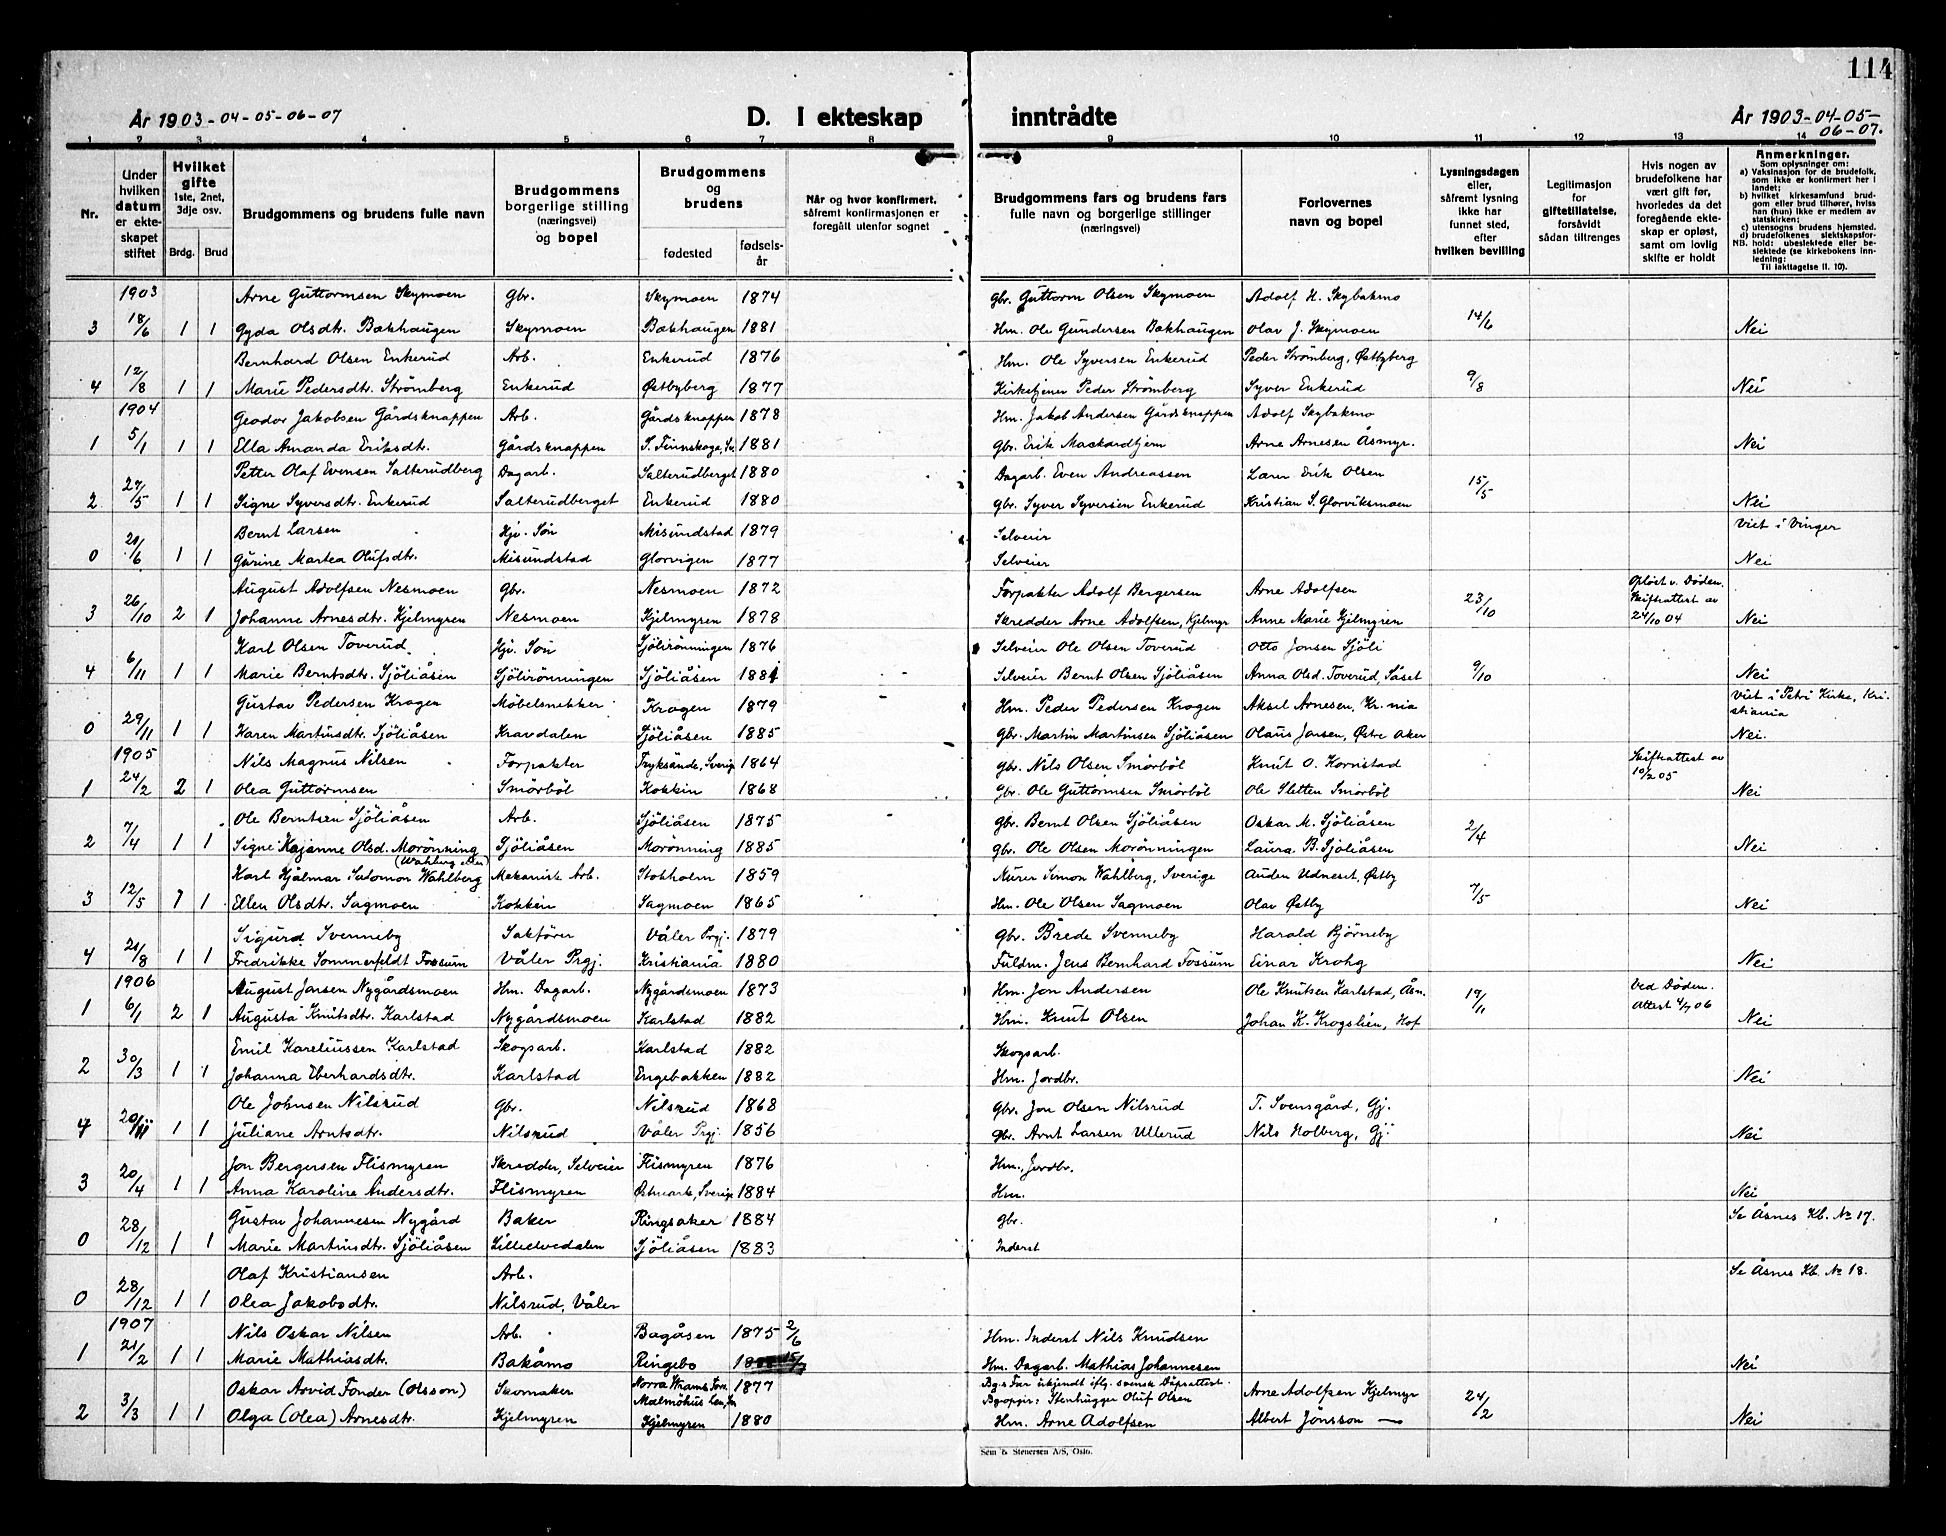 114
År 1903-04-05-06-07
D. I ekteskap inntrådte
År 1903-04-05-
06-07.
1 2 3 4 5 6 7 8 9 10 11 12 13 14
Nr.
Under hvilken datum er ekteskapet stiftet
Hvilket gifte 1ste, 2net, 3dje osv.
Brdg. Brud
Brudgommens og brudens fulle navn
Brudgommens borgerlige stilling (næringsvei) og bopel
Brudgommens og brudens
fødested
fødselsår
Når og hvor konfirmert, såfremt konfirmasjonen er foregått utenfor sognet
Brudgommens fars og brudens fars fulle navn og borgerlige stillinger (næringsvei)
Forlovernes navn og bopel
Lysningsdagen eller, såfremt lysning ikke har funnet sted, efter hvilken bevilling
Legitimasjon for giftetillatelse, forsåvidt sådan tiltrenges
Hvis nogen av brudefolkene har vært gift før, hvorledes da det foregående ekteskap er opløst, samt om lovlig skifte er holdt
Anmerkninger.
Som oplysninger om:
a) Vaksinasjon for de brudefolk, som ikke er konfirmert her i landet;
b) hvilket kirkesamfund brudgom eller brud tilhører, hviss han (hun) ikke er medlem av statskirken;
c) utensogns brudens hjemsted.
d) brudefolkenes slektskapsforhold: ubeslektede eller beslektede (se kirkebokens innledning:
NB.
Til iakttagelse II. 10).
1903 Arne Guttormsen Skymoen Gbr. Skymoen 1874 Gbr. Guttorm Olsen Skymoen Adolf H. Skybakmo
3 18/6 1 1 Gyda Olsdtr. Bakhaugen Skymoen Bakhaugen 1881 Hm. Ole Gundersen Bakhaugen Olav J. Skymoen 14/6 Nei
Bernhard Olsen Enkerud Arb. Enkerud 1876 Hm. Ole Syversen Enkerud Peder Strömberg, Østbyberg
4 12/8 1 1 Marie Pedersdtr. Strömberg Enkerud Østbyberg 1877 Kirketjener Peder Strömberg Syver Enkerud 9/8 Nei
1904 Geodor Jakobsen Gårdsknappen Arb. Gårdsknappen 1878 Hm. Jakob Andersen Gårdsknappen Adolf Skybakmo
1 5/1 1 1 Ella Amanda Eriksdtr. Gårdsknappen S. Finnskoga, Sv. 1881 Gbr. Erik Mackardtjern Arne Arnesen Åsmyr. Nei
Petter Olaf Evensen Salterudberg Dagarb. Salterudberget 1880 Dagarb. Even Andreassen Lærer Erik Olsen
2 27/5 1 1 Signe Syversdtr. Enkerud Salterudberget Enkerud 1880 Gbr. Syver Syversen Enkerud Kristian S. Glorviksmoen 15/5 Nei
Bernt Larsen Hjv. Sön Misundstad 1879 Selveier Viet i Vinger
0 21/6 1 1 Gurine Martea Olufsdtr. Misundstad Glorvigen 1877 Selveier Nei
August Adolfsen Nesmoen Gbr. Nesmoen 1872 Forpakter Adolf Bergersen Arne Adolfsen Opløst v. Døden.
3 26/10 2 1 Johanne Arnesdtr. Kjelmyren Nesmoen Kjelmyren 1878 Skredder Arne Adolfsen, Kjelmyr Anne Marie Kjelmyren 23/10 Skifteattest av 24/10 04 Nei
Karl Olsen Toverud Hjv. Sön Sjölirönningen 1876 Selveier Ole Olsen Toverud Otto Jonsen Sjöli
4 6/11 1 1 Marie Berntsdtr. Sjöliåsen Sjölirönningen Sjöliåsen 1881 Selveier Bernt Olsen Sjöliåsen Anna Olsd. Toverud, Såset 9/10 Nei
Gustav Pedersen Krogen Möbelsnekker Krogen 1879 Hm. Peder Pedersen Krogen Aksel Arnesen, Kr.nia Viet i Petri Kirke, Kristiania
0 29/11 1 1 Karen Martinsdtr. Sjöliåsen Kravdalen Sjöliåsen 1885 Gbr. Martin Martinsen Sjöliåsen Olaus Jansen, Østre Aker Nei.
1905 Nils Magnus Nilsen Forpakter Fryksände, Sverig 1864 Gbr. Nils Olsen Smörböl Knut O. Kornstad Skifteattest av 10/2 05
1 24/2 2 1 Olea Guttormsen Smörböl Kokkin 1868 Gbr. Ole Guttormsen Smörböl Ole Sletten Smörböl Nei
Ole Berntsen Sjöliåsen Arb. Sjöliåsen 1875 Gbr. Bernt Olsen Sjöliåsen Oskar M. Sjöliåsen
2 7/4 1 1 Signe Kajanne Olsd. Morönning Sjöliåsen Morönning 1885 Gbr. Ole Olsen Morönningen Laura B. Sjöliåsen 2/4 Nei
Karl Hjalmar Salomon Wahlberg Mekanisk Arb. Stokholm 1859 Murer Simon Wahlberg, Sverige Auden Udneset, Østby
3 12/5 1 Ellen Olsdtr. Sagmoen Kokkin Sagmoen 1865 Hm. Ole Olsen Sagmoen Olav Østby 7/5 Nei
Sigurd Svenneby Sakförer Våler Prgj. 1879 Gbr. Brede Svenneby Harald Björneby
4 21/8 1 1 Fredrikke Sommerfeldt Fossum Våler Prgj. Kristiania 1880 Fuldm. Jens Bernhard Fossum Einar Krohg Nei
1906 August Jansen Nygårdsmoen Hm. Dagarb. Nygårdsmoen 1873 Hm. Jon Andersen Ole Knutsen Karlstad, Åsn. Ved Døden.
1 6/1 2 1 Augusta Knutsdtr. Karlstad Nygårdsmoen Karlstad 1882 Hm. Knut Olsen Johan K. Krogslien, Hof 19/11 Attest 4/1 06 Nei
Emil Kareliussen Karlstad Skogsarb. Karlstad 1882 Skogsarb.
2 30/3 1 1 Johanna Eberhardsdtr. Karlstad Engebakken 1882 Hm. Jordbr. Nei
Ole Johnsen Nilsrud Gbr. Nilsrud 1868 Gbr. Jon Olsen Nilsrud T. Svensgård, Gj.
4 20/11 1 1 Juliane Arntsdtr. Nilsrud Våler Prgj. 1856 Gbr. Arnt Larsen Ullerud Nils Holberg, Gj. Nei
Jon Bergersen Flismyren Skredder, Selveier Flismyren 1876 Hm., Jordbr.
3 20/4 1 1 Anna Karoline Andersdtr. Flismyren Østmark, Sverige 1884 Hm. Nei
Gustav Johannesen Nygård Baker Ringsaker 1884 Gbr. Se Åsnes Kb. No 17.
0 28/12 1 1 Marie Martinsdtr. Sjöliåsen Lilleelvedalen Sjöliåsen 1883 Inderst
Olaf Kristiansen Arb. Se Åsnes Kb. No 18.
0 28/12 1 1 Olea Jakobsdtr. Nilsrud, Våler
1907 Nils Oskar Nilsen Arb. Bagåsen 1875 2/6 Hm. Inderst Nils Knudsen
1 21/2 1 1 Marie Mathiasdtr. Bakåmo Ringebo Hm. Dagarb. Mathias Johannesen Nei
Oskar Arvid Fonder (Olsson) Skomaker 1877 Bg.s Far ukjendt iflg. svensk Dåpsattest. Arne Adolfsen Kjelmyr
Malmöhus Len, Bg. opgir: Stenhugger Oluf Olsen
2 3/3 1 1 Olga (Olea) Arnesdtr. Kjelmyren Kjelmyren 1880 Hm. Arne Adolfsen Albert Jönsson — 24/2 Nei
Sem & Stenersen A/S, Oslo.